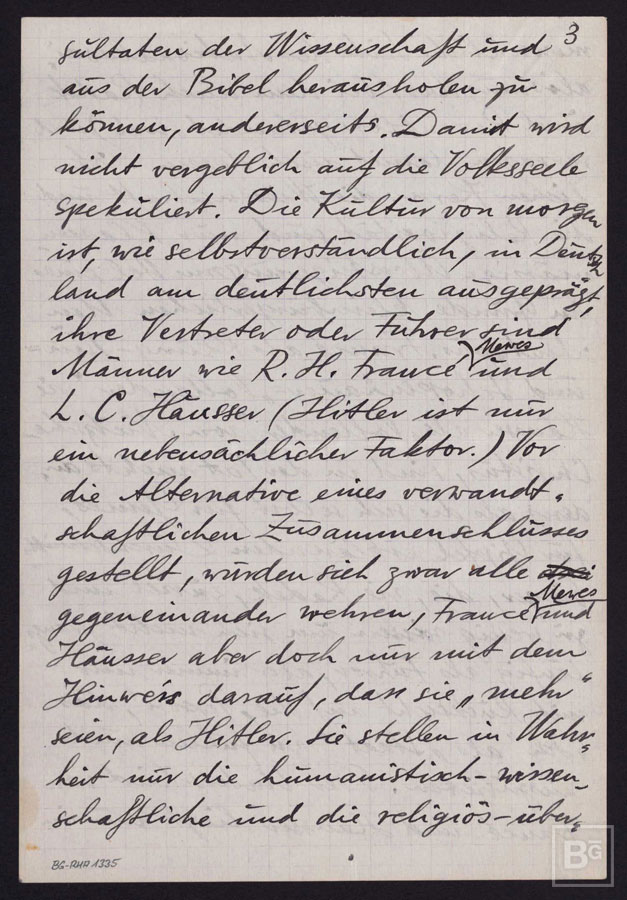 3
sultaten der Wissenschaft und
aus der Bibel herausholen zu
können, andererseits. Damit wird
nicht vergeblich auf die Volksseele
spekuliert. Die Kultur von morgen
ist, wie selbstverständlich, in Deutsch
land am deutlichsten ausgeprägt,
ihre Vertreter oder Führer sind
Mewes
Männer wie R. H. Francé und
L. C. Häusser (Hitler ist nur
ein nebensächlicher Faktor.) Vor
die Alternative eines verwandt-
schaftlichen Zusammenschlusses
gestellt, würden sich zwar alle
Mewes
gegeneinander wehren, Francé und
Häusser aber doch nur mit dem
Hinweis darauf, dass sie „mehr“
seien, als Hitler. Sie stellen in Wahr-
heit nur die humanistisch-wissen-
schaftliche und die religiös-über-
BG-RHA 1335
BG